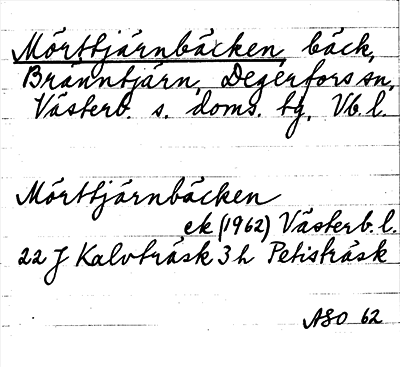 Mörttjärnbäcken, bäck,
Bränntjärn, Degerfors sn,
Västerb. s. doms. tg, Vb. l.
Mörttjärnbäcken
ek (1962) Västerb. l.
22 J Kalvträsk 3 h Petisträsk
ASO 62